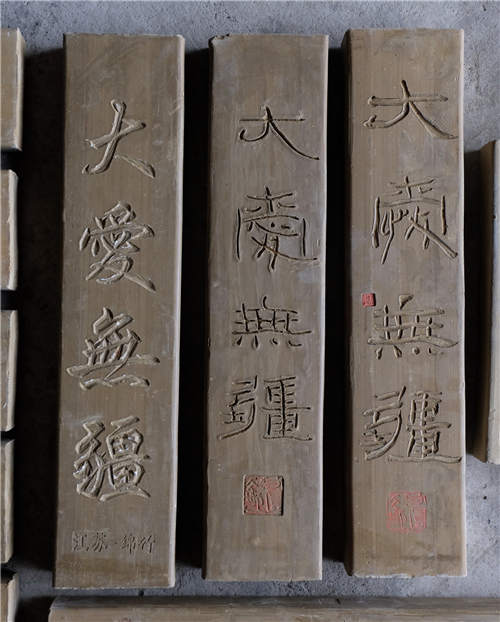 大愛無疆
江苏-綿竹
大愛無疆
大愛無疆